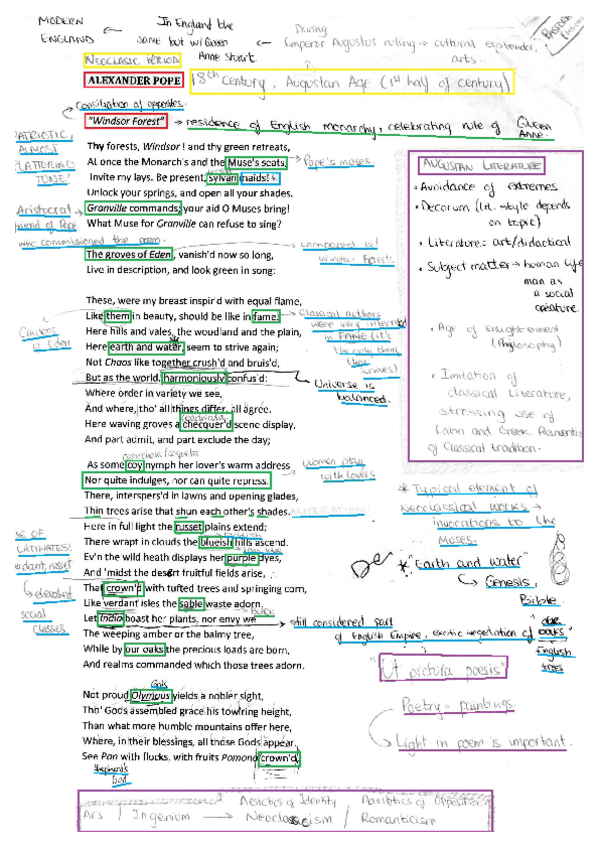 MODERN ENGLAND ← In England the same but w/ Queen Anne Stuart. ← During Emperor Augustus ruling → cultural explendor, arts.
PASTORAL
NEOCLASIC PERIOD
ALEXANDER POPE 18th Century, Augustan Age (1st half of century)
Conciliation of opposites.
"Windsor Forest" → residence of English monarchy, celebrating rule of Queen Anne.
PATRIOTIC, ALMOST FLATTERING TONE!
Thy forests, Windsor ! and thy green retreats,
AL once the Monarch's and the Muse's seats, Pope's muses.
Invite my lays. Be present, sylvan maids! *
Unlock your springs, and open all your shades.
Granville commands; your aid O Muses bring!
What Muse for Granville can refuse to sing?
Aristocrat friend of Pope who commissioned the poem.
The groves of Eden, vanish'd now so long, compared w/ Windsor Forests
Live in description, and look green in song:
These, were my breast inspir'd with equal flame,
Like them in beauty, should be like in fame.
Here hills and vales, the woodland and the plain,
Here earth and water, seem to strive again;
Not Chaos like together crush'd and bruis'd,
But as the world, harmoniously confus'd:
Gardens of Eden
Classical authors were very interested in FAME (it's the only thing that survives)
Universe is balanced.
Where order in variety we see,
And where, tho' all things differ, all agree.
Here waving groves a checquer'd scene display,
And part admit, and part exclude the day;
As some coy nymph her lover's warm address
Nor quite indulges, nor can quite repress.
Women play with lovers
There, interspers'd in lawns and opening glades,
Thin trees arise that shun each other's shades. ALLITERATION
Here in full light the russet plains extend;
There wrapt in clouds the blueish hills ascend.
Ev'n the wild heath displays her purple dyes,
And 'midst the desert fruitful fields arise,
That crown'd with tufted trees and springing corn,
Like verdant isles the sable waste adorn.
USE OF LATINATES: verdant, russet
elevated social classes
Let India boast her plants, nor envy we → still considered part of English Empire, exotic vegetation of
The weeping amber or the balmy tree,
While by our oaks the precious loads are born,
And realms commanded which those trees adorn.
"our oaks" English trees
Gods
Not proud Olympus yields a nobler sight,
Tho' Gods assembled grace his tow'ring height,
Than what more humble mountains offer here,
Where, in their blessings, all those Gods appear.
See Pan with flocks, with fruits Pomona crown'd,
Shepherd's God
AUGUSTAN LITERATURE
• Avoidance of extremes
• Decorum (lit. style depends on topic)
• Literature: art/didactical
• Subject matter → human life man as a social creature
• Age of Enlightenment (Philosophy)
• Imitation of classical literature, stressing use of Latin and Greek.
of Classical tradition.
* Typical element of Neoclassical works → invocations to the Muses.
* "Earth and water"
Genesis, Bible.
"Ut pictura poesis"
Poetry = paintings.
Light in poem is important.
Ars / Ingenium → Aesthetics of Identity Neoclassicism / Aesthetics of Opposition Romanticism